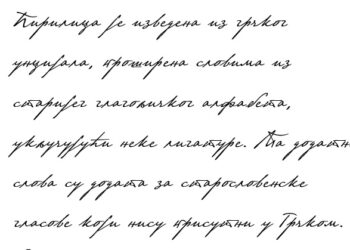 Ћирилица је изведена из грчког
унцијала, проширена словима из
старијег глагољичког алфабета,
укључујући неке лигатуре. Та додатн
слова су додата за старословенске
гласове који нису присутни у Грчком.